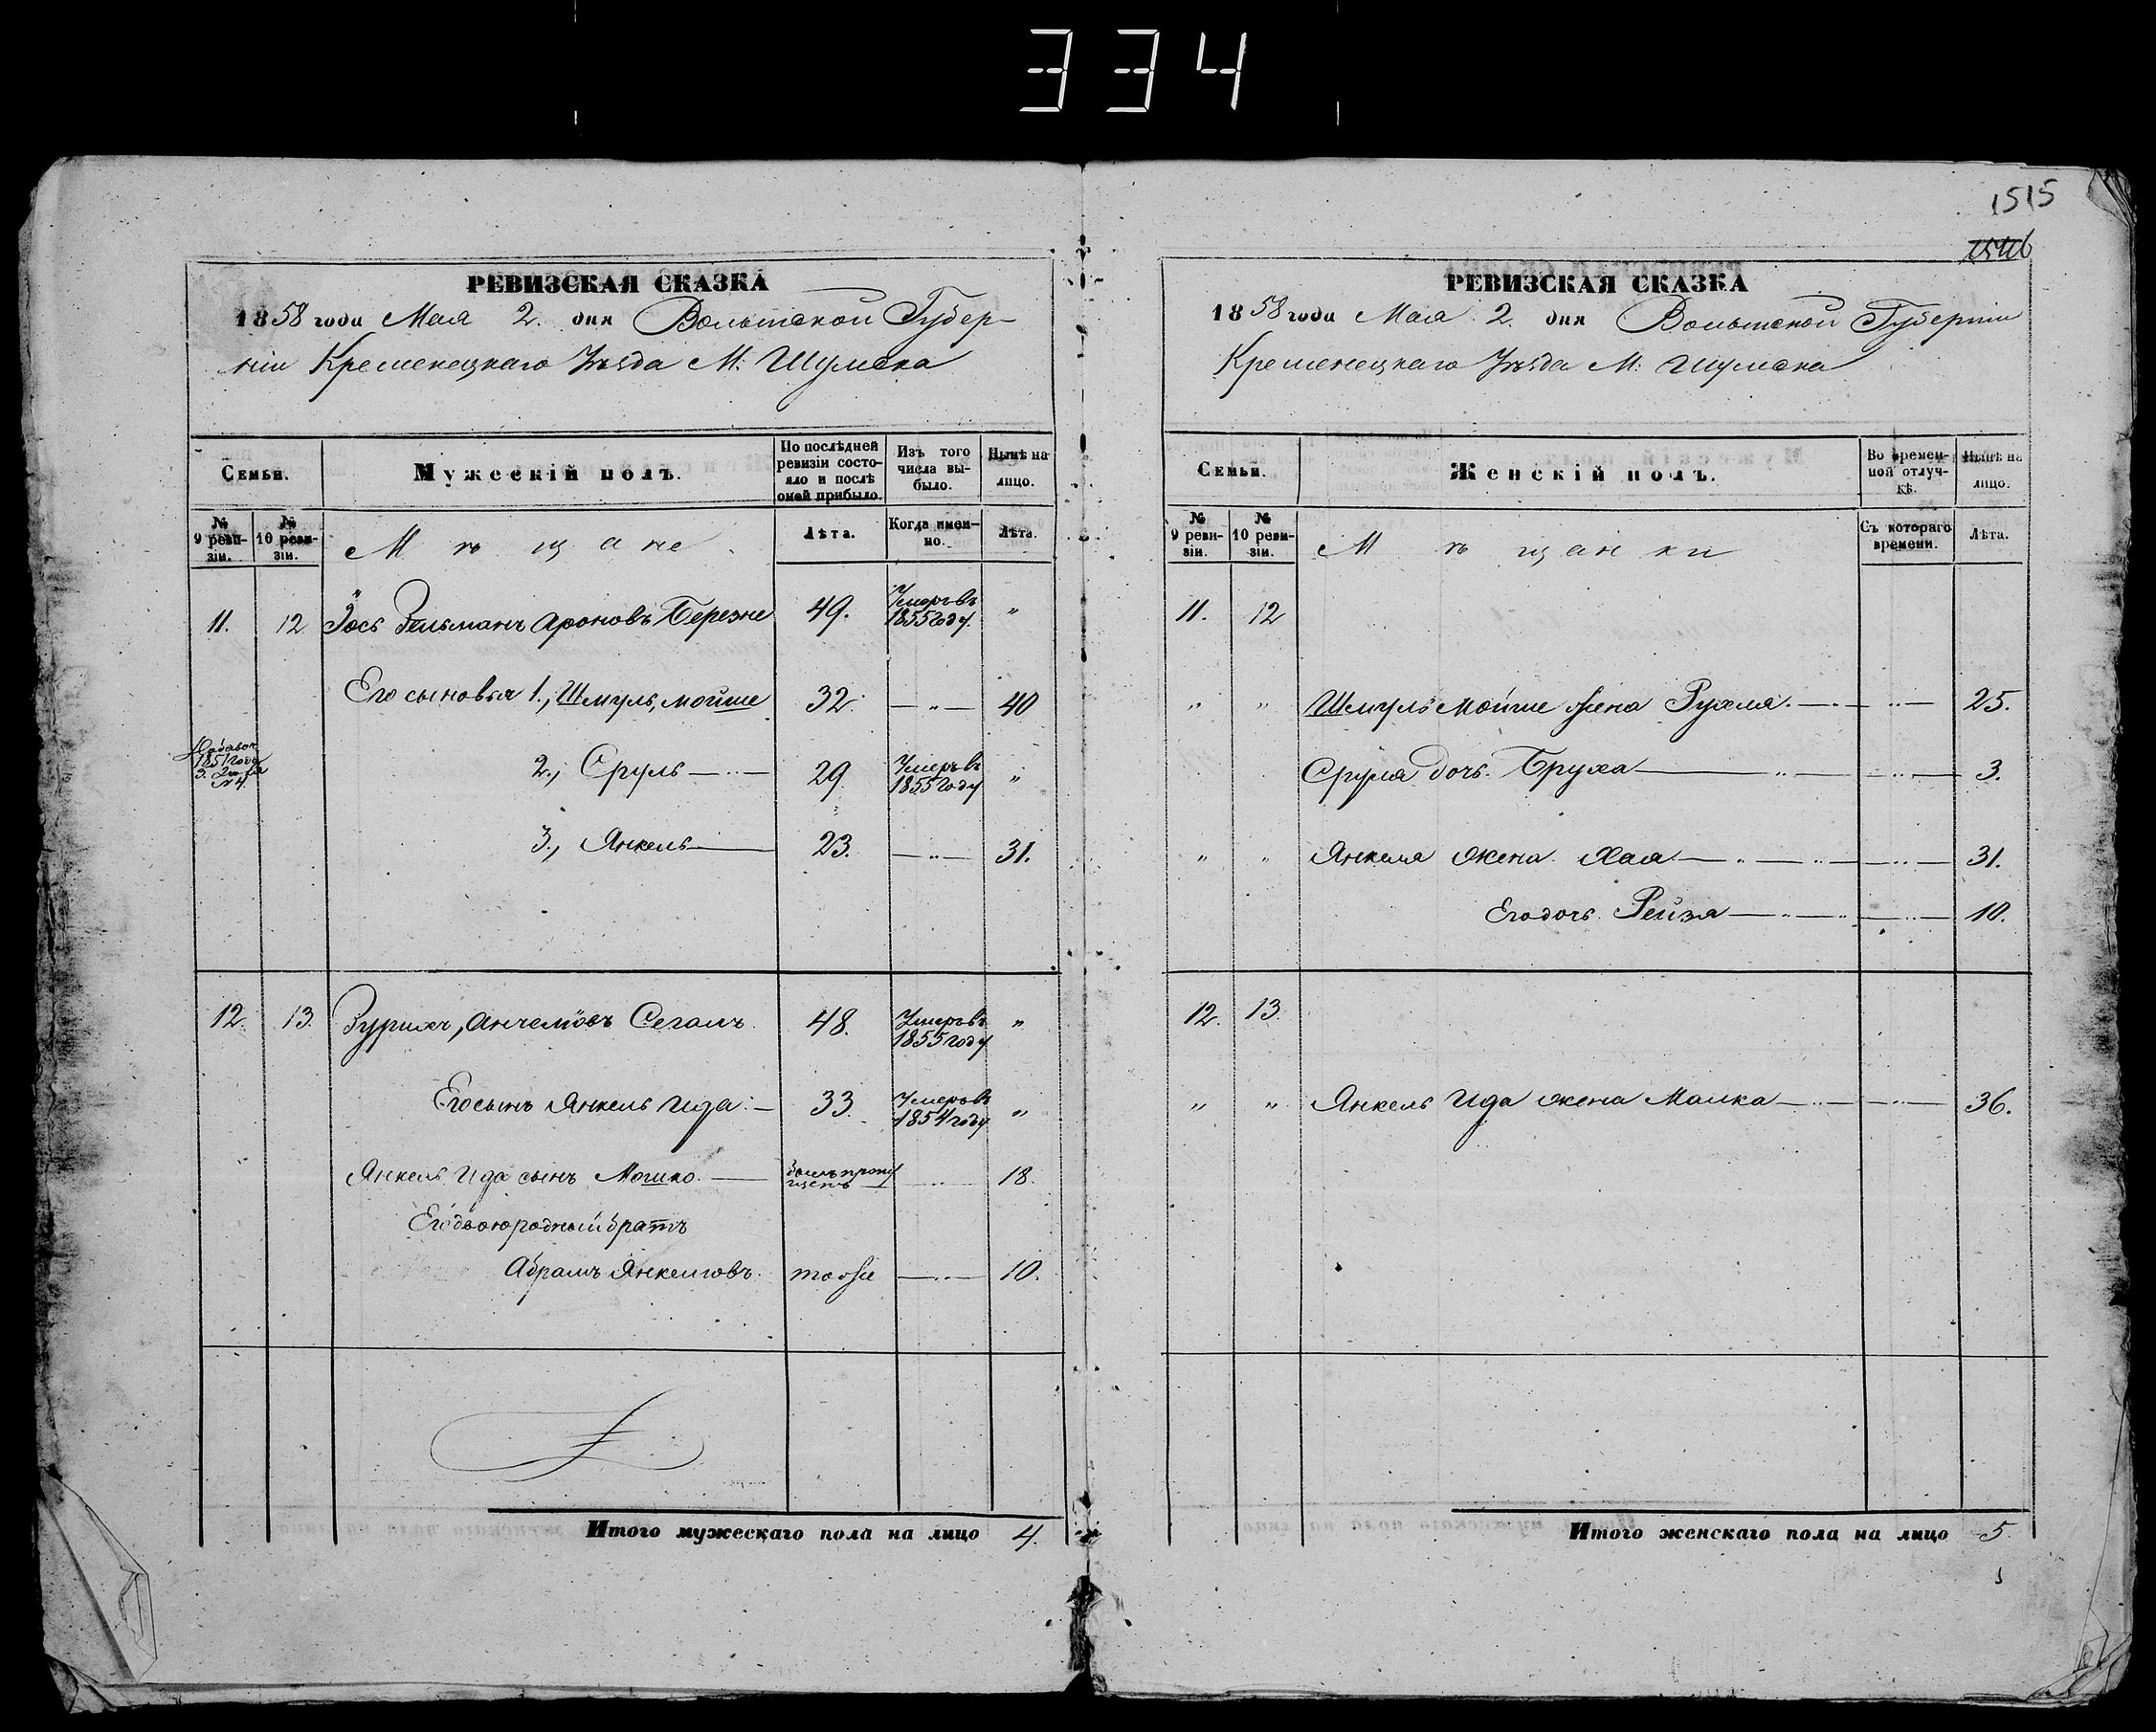 334
1515
РЕВИЗСКАЯ СКАЗКА
1858 года Мая 2. дня Волынской Губер-
нiи Кременецкаго Уѣзда М: Шумска
Семьи.
Мужескiй полъ.
По послѣдней ревизiи состо-
яло и послѣ оной прибыло.
Изъ того числа вы-
было.
Нынѣ на лицо.
№ 9 реви-
зiи.
№ 10 реви-
зiи.
Мѣщане.
Лѣта.
Когда имен-
но.
Лѣта.
11. 12 Іось Зельманъ Ароновъ Березне 49. Умеръ въ 1855 году. "
Его сыновья 1., Шмуль, мойше 32. — " — 40
1851 года
2., Сруль — " — 29. Умеръ въ 1855 году "
3., Янкель — 23. — " — 31.
12. 13. Анчелiовъ Сегалъ 48. Умеръ въ 1855 году "
Его сынъ Янкель Ида — 33. Умеръ въ 1854 году "
Янкель Ида сынъ Мошко. — 18.
Его двоюродный братъ
Абрамъ Янкелiовъ. тоже — " — 10.
Итого мужескаго пола на лицо 4.
РЕВИЗСКАЯ СКАЗКА
1858 года Мая 2. дня Волынской Губернiи
Кременецкаго Уѣзда М: Шумска
Семьи.
Женскiй полъ.
Во времен-
ной отлуч-
кѣ.
Нынѣ на лицо.
№ 9 реви-
зiи.
№ 10 реви-
зiи.
Мѣщанки
Съ котораго времени.
Лѣта.
11. 12
" " Шмуль Мойше жена Рухля. — " — 25.
Сруля дочь. Бруха — " — 3.
" " Янкеля жена Хая — " — 31.
Его дочь. Рейзя — " — 10.
12. 13.
" " Янкель Ида жена Малка — " — 36.
Итого женскаго пола на лицо 5.